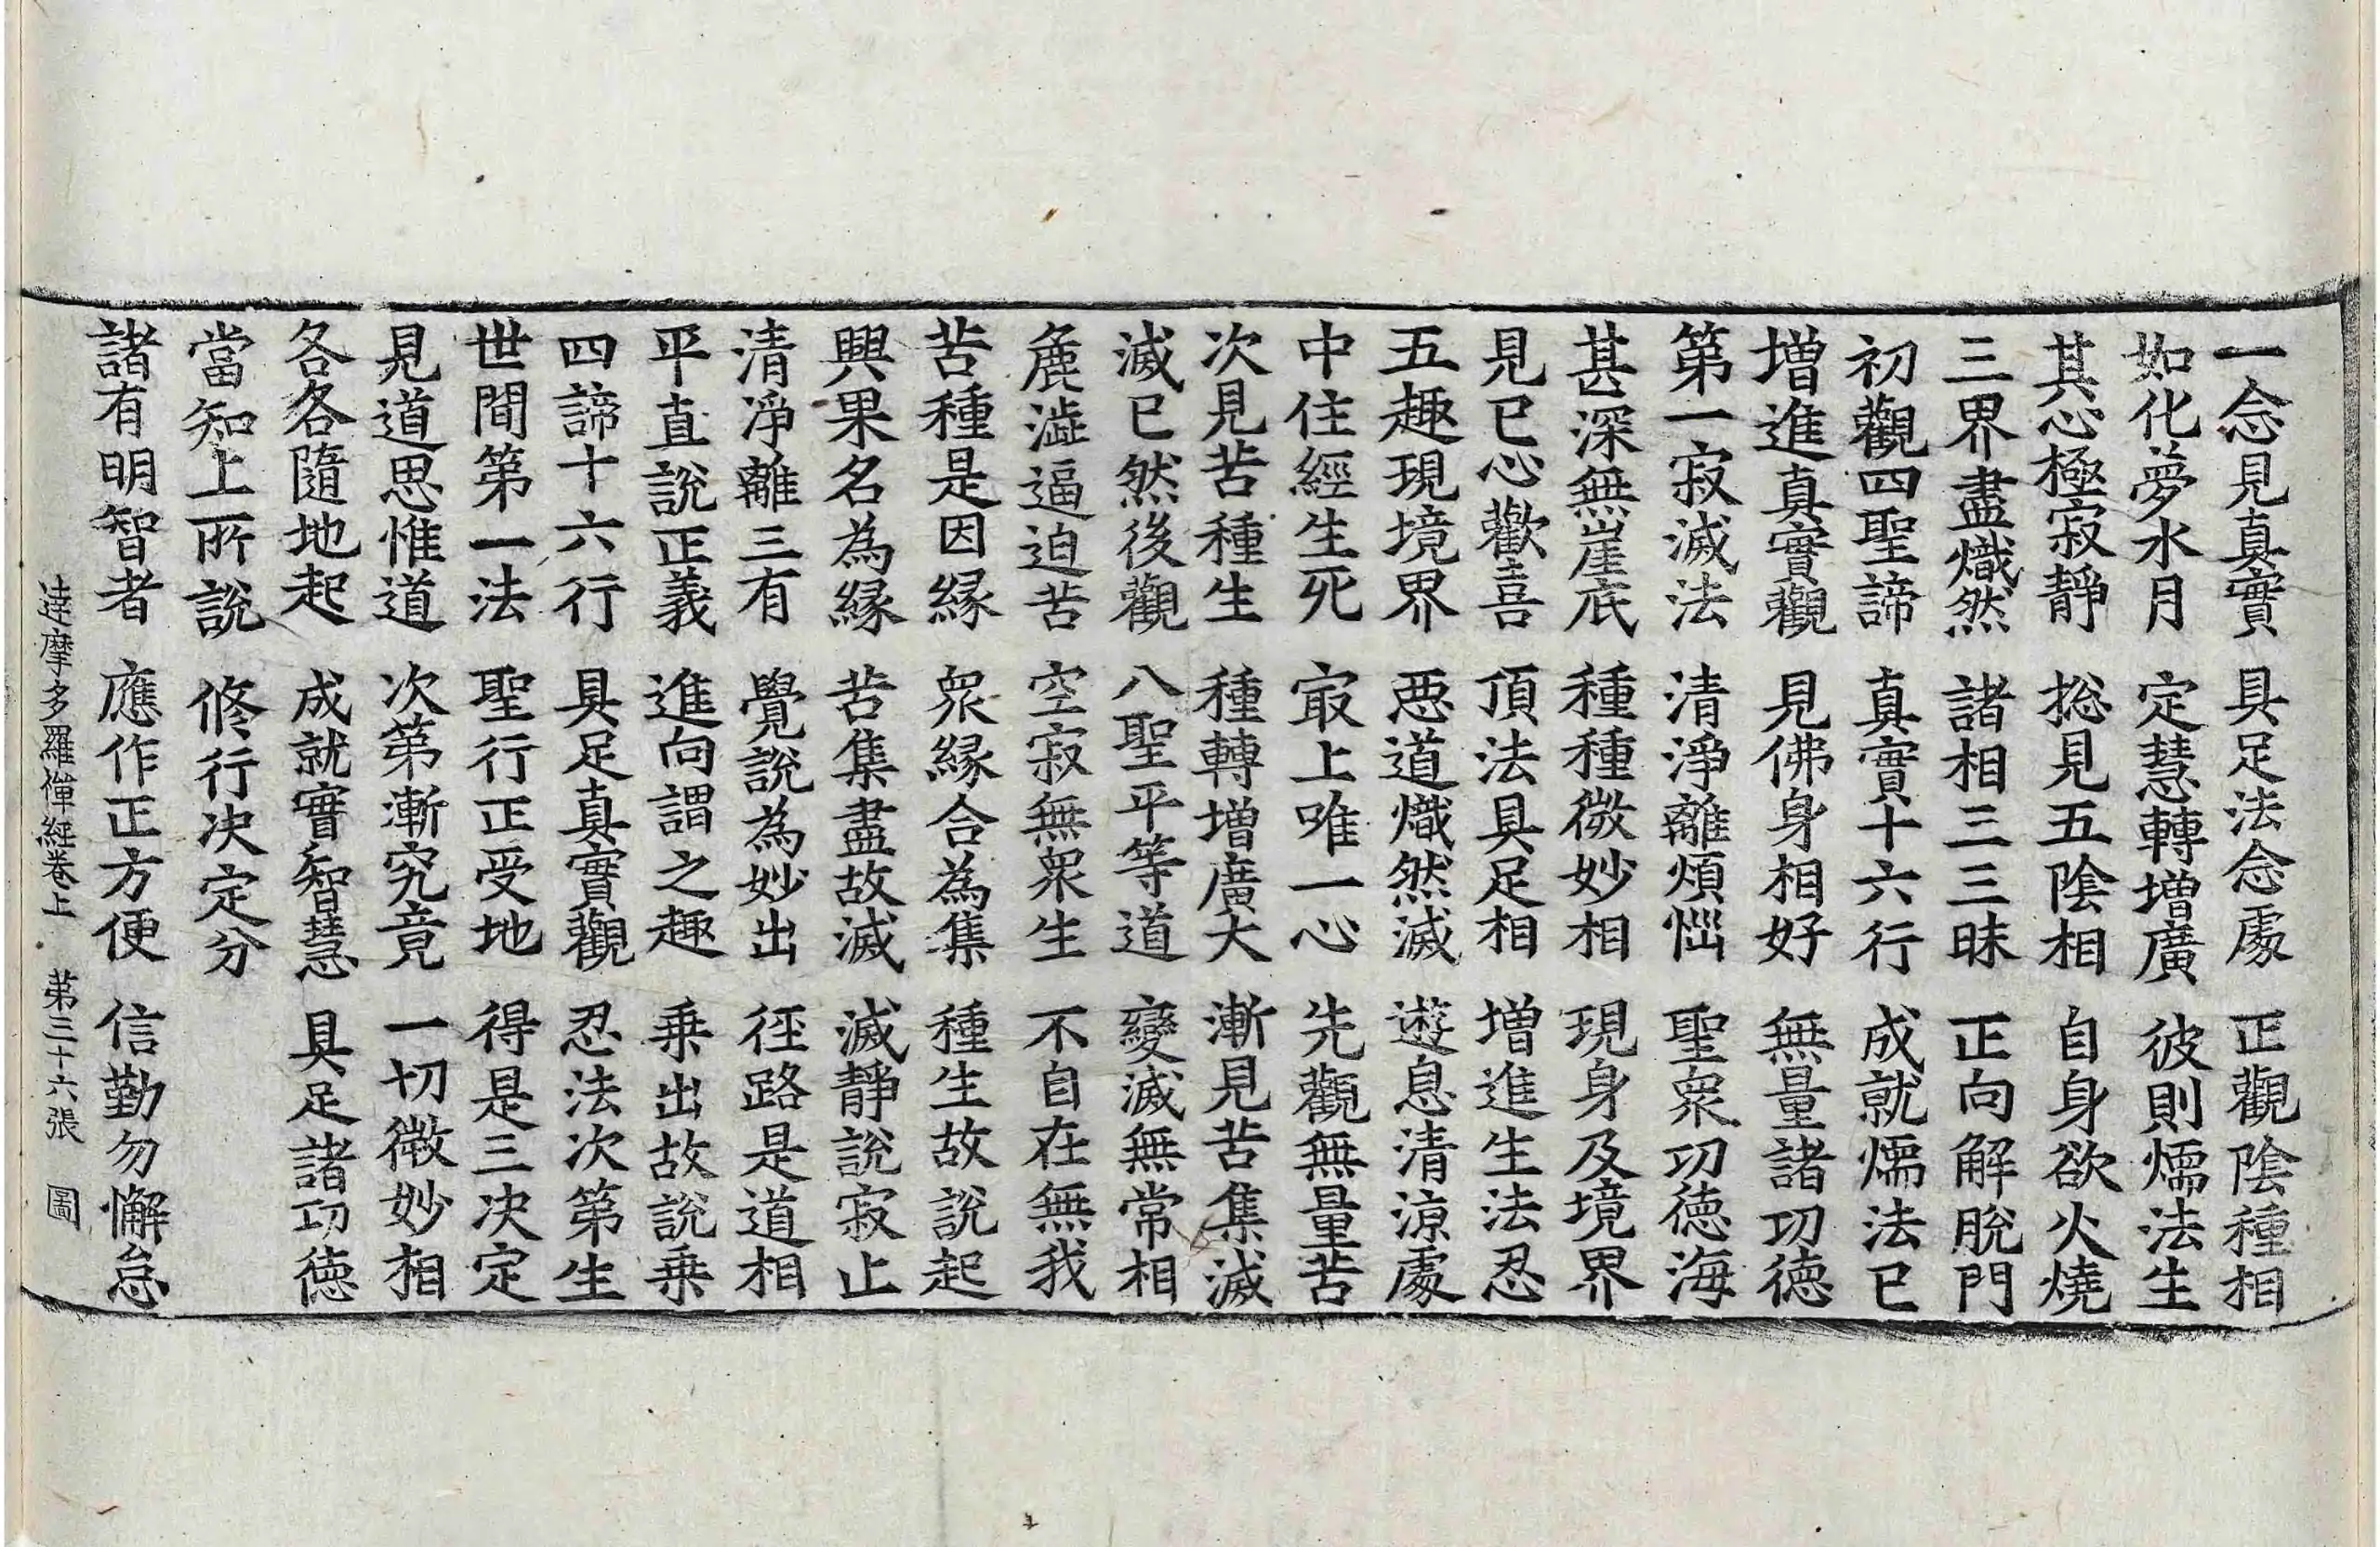 一念見真實　具足法念處　正觀陰種相
如化夢水月　定慧轉增廣　彼則燸法生
其心極寂靜　捴見五陰相　自身欲火燒
三界盡熾然　諸相三三昧　正向解脫門
初觀四聖諦　真實十六行　成就燸法已
增進真實觀　見佛身相好　無量諸功德
第一寂滅法　清淨離煩惱　聖衆功德海
甚深無崖底　種種微妙相　現身及境界
見已心歡喜　頂法具足相　增進生法忍
五趣現境界　惡道熾然滅　遊息清涼處
中住經生死　㝡上唯一心　先觀無量苦
次見苦種生　種轉增廣大　漸見苦集滅
滅已然後觀　八聖平等道　變滅無常相
麁澁逼迫苦　空寂無衆生　不自在無我
苦種是因緣　衆緣合為集　種生故說起
興果名為緣　苦集盡故滅　滅靜說寂止
清淨離三有　覺說為妙出　徑路是道相
平直說正義　進向謂之趣　乗出故說乗
四諦十六行　具足真實觀　忍法次第生
世間第一法　聖行正受地　得是三決定
見道思惟道　次第漸究竟　一切微妙相
各各隨地起　成就實智慧　具足諸功德
當知上所說　修行決定分
諸有明智者　應作正方便　信勤勿懈怠
達摩多羅禪経卷上　第三十六張　圖